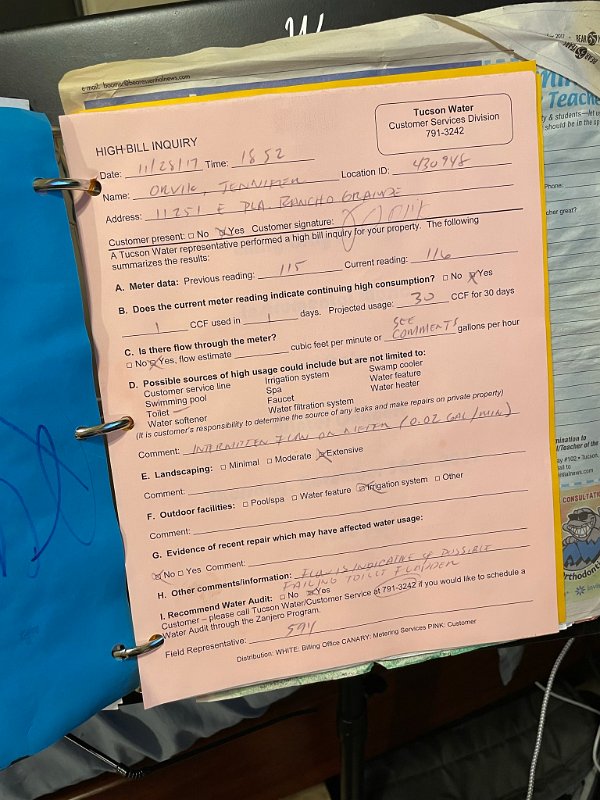 e-mail: boomsc@bearessentialnews.com
Tucson Water
Customer Services Division
791-3242
HIGH BILL INQUIRY
Date: 11/28/17 Time: 1852
Name: ORVIK, JENNIFER Location ID: 430948
Address: 11251 E PLA. RANCHO GRANDE
Customer present: □ No ☒ Yes Customer signature:
A Tucson Water representative performed a high bill inquiry for your property. The following
summarizes the results:
A. Meter data: Previous reading: 115 Current reading: 116
B. Does the current meter reading indicate continuing high consumption? □ No ☒ Yes
1 CCF used in 1 days. Projected usage: 30 CCF for 30 days
C. Is there flow through the meter?
□ No ☒ Yes, flow estimate cubic feet per minute or SEE COMMENTS gallons per hour
D. Possible sources of high usage could include but are not limited to:
Customer service line Irrigation system Swamp cooler
Swimming pool Spa Water feature
Toilet Faucet Water heater
Water softener Water filtration system
(It is customer's responsibility to determine the source of any leaks and make repairs on private property)
Comment: INTERMITTEN FLOW ON METER (0.02 GAL/MIN)
E. Landscaping: □ Minimal □ Moderate ☒ Extensive
Comment:
F. Outdoor facilities: □ Pool/spa □ Water feature ☒ Irrigation system □ Other
Comment:
G. Evidence of recent repair which may have affected water usage:
☒ No □ Yes Comment:
H. Other comments/information: FLOW IS INDICATIVE OF POSSIBLE
FAILING TOILET FLAPPER
I. Recommend Water Audit: □ No ☒ Yes
Customer – please call Tucson Water/Customer Service at 791-3242 if you would like to schedule a
Water Audit through the Zanjero Program.
Field Representative:
Distribution: WHITE: Billing Office CANARY: Metering Services PINK: Customer
Teache
y & students—let us
should be in the sp
Phone:
cher great?
mination to
l/Teacher of the
ay #102 • Tucson,
ail to
ialnews.com
CONSULTATI
rthodonti